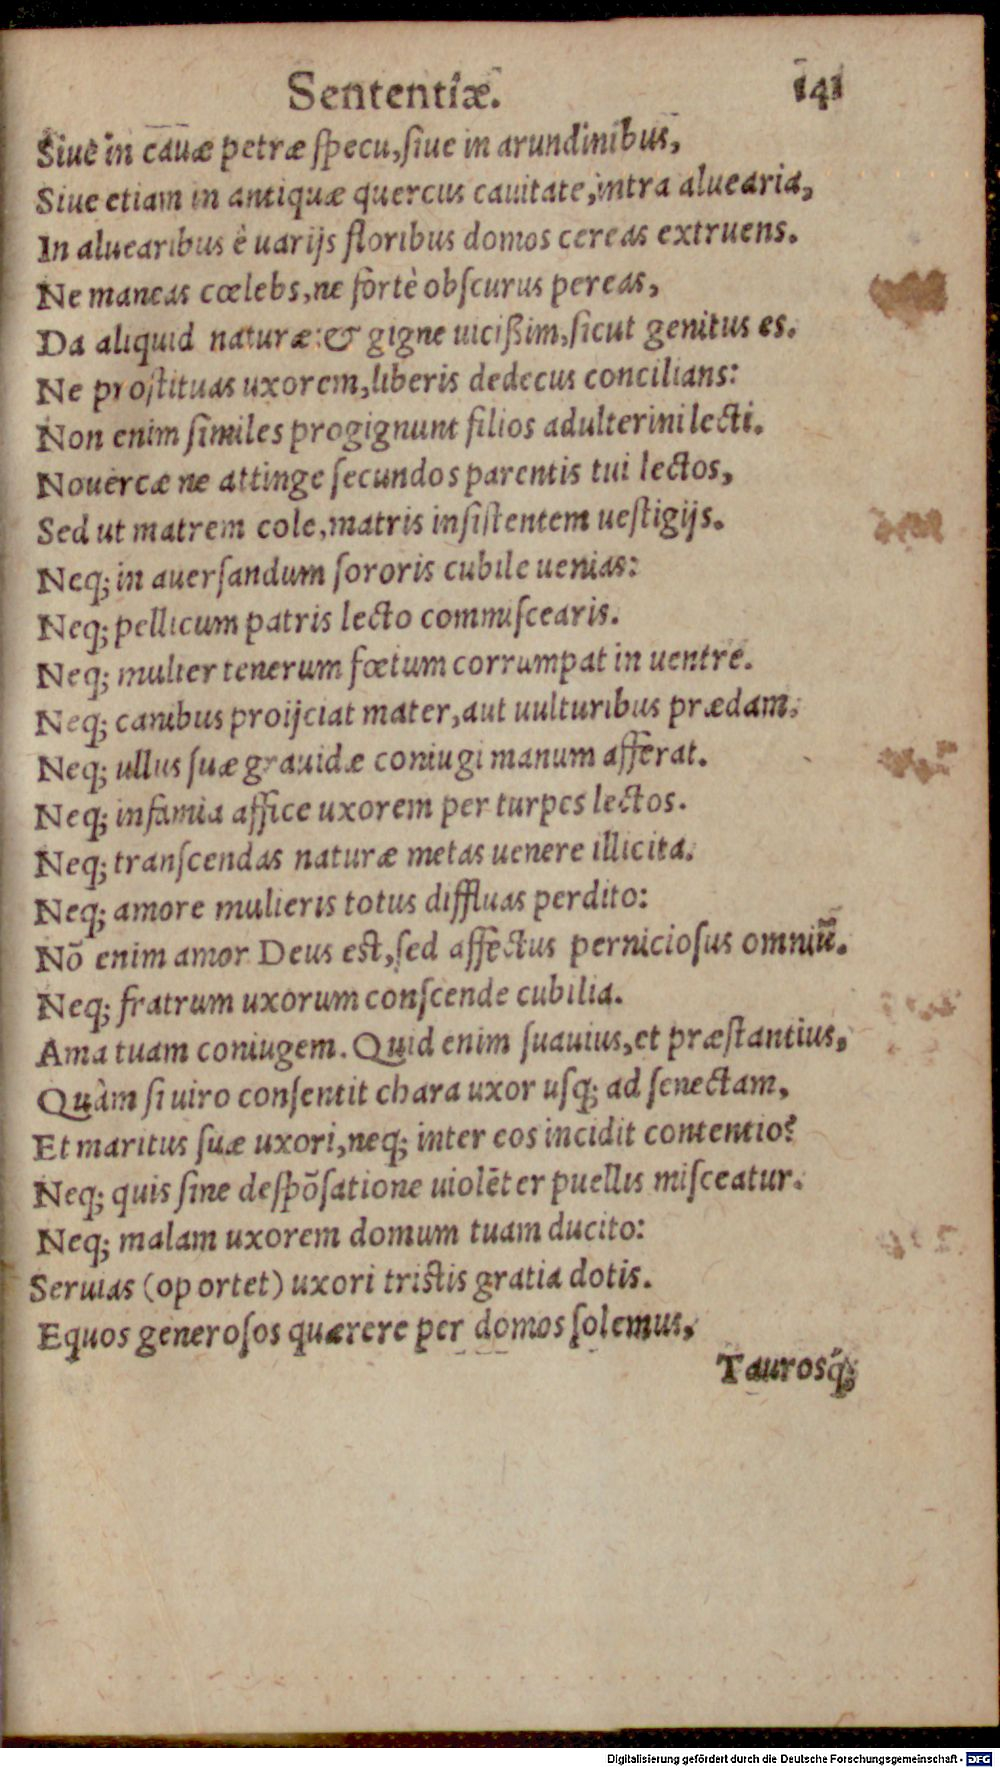 Sententiæ. 141
Siue in cauæ petræ ſpecu, ſiue in arundinibus,
Siue etiam in antiquæ quercus cauitate, intra aluearia,
In aluearibus è uarijs floribus domos cereas extruens.
Ne maneas cœlebs, ne fortè obſcurus pereas,
Da aliquid naturæ: & gigne uicißim, ſicut genitus es.
Ne proſtituas uxorem, liberis dedecus concilians:
Non enim ſimiles progignunt filios adulterini lecti.
Nouercæ ne attinge ſecundos parentis tui lectos,
Sed ut matrem cole, matris inſiſtentem ueſtigijs.
Neq; in auerſandum ſororis cubile uenias:
Neq; pellicum patris lecto commiſcearis.
Neq; mulier tenerum fœtum corrumpat in uentre.
Neq; canibus proijciat mater, aut uulturibus prædam.
Neq; ullus ſuæ grauidæ coniugi manum afferat.
Neq; infamia affice uxorem per turpes lectos.
Neq; tranſcendas naturæ metas uenere illicita.
Neq; amore mulieris totus diffluas perdito:
Nō enim amor Deus eſt, ſed affectus pernicioſus omniū.
Neq; fratrum uxorum conſcende cubilia.
Ama tuam coniugem. Quid enim ſuauius, et præſtantius,
Quàm ſi uiro conſentit chara uxor uſq; ad ſenectam,
Et maritus ſuæ uxori, neq; inter eos incidit contentio?
Neq; quis ſine deſpōſatione uiolēter puellis miſceatur.
Neq; malam uxorem domum tuam ducito:
Seruias (oportet) uxori triſtis gratia dotis.
Equos generoſos quærere per domos ſolemus,
Taurosq́;
Digitalisierung gefördert durch die Deutsche Forschungsgemeinschaft - DFG